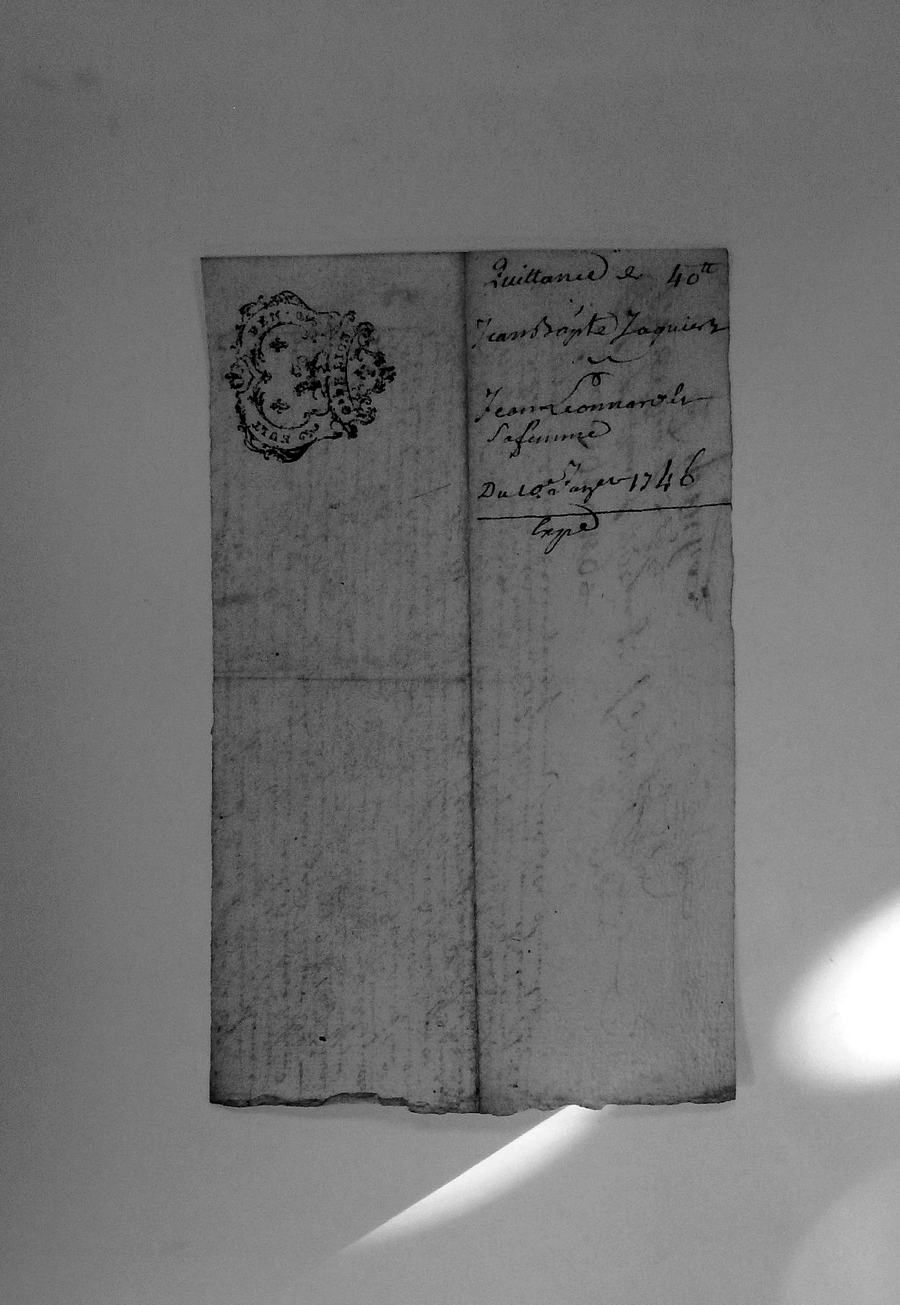 Quittance de 40ᵗᵗ
Jean Bapte Jaquier
Jean Leonnard
Sa femme
Du 10e Janver 1746
Expé